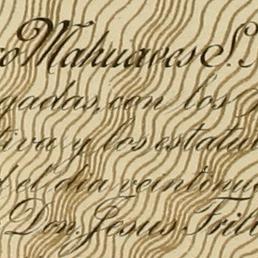 ro Mahuaces S.
gadas, con los
tiva y los estatu
el dia veintinu
Don Jesus Trill